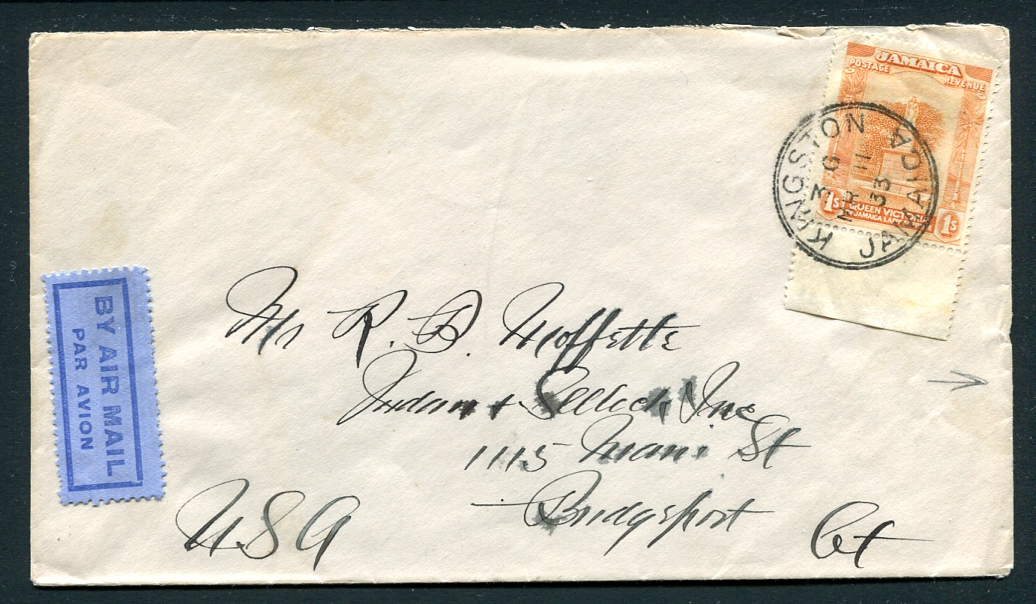 JAMAICA
POSTAGE REVENUE
1s QUEEN VICTORIA 1s
JAMAICA
KINGSTON JAMAICA
3 G
MR 11
33
BY AIR MAIL
PAR AVION
Mr R. B. Moffette
& Inc
1115 Main St
Bridgeport Ct
USA